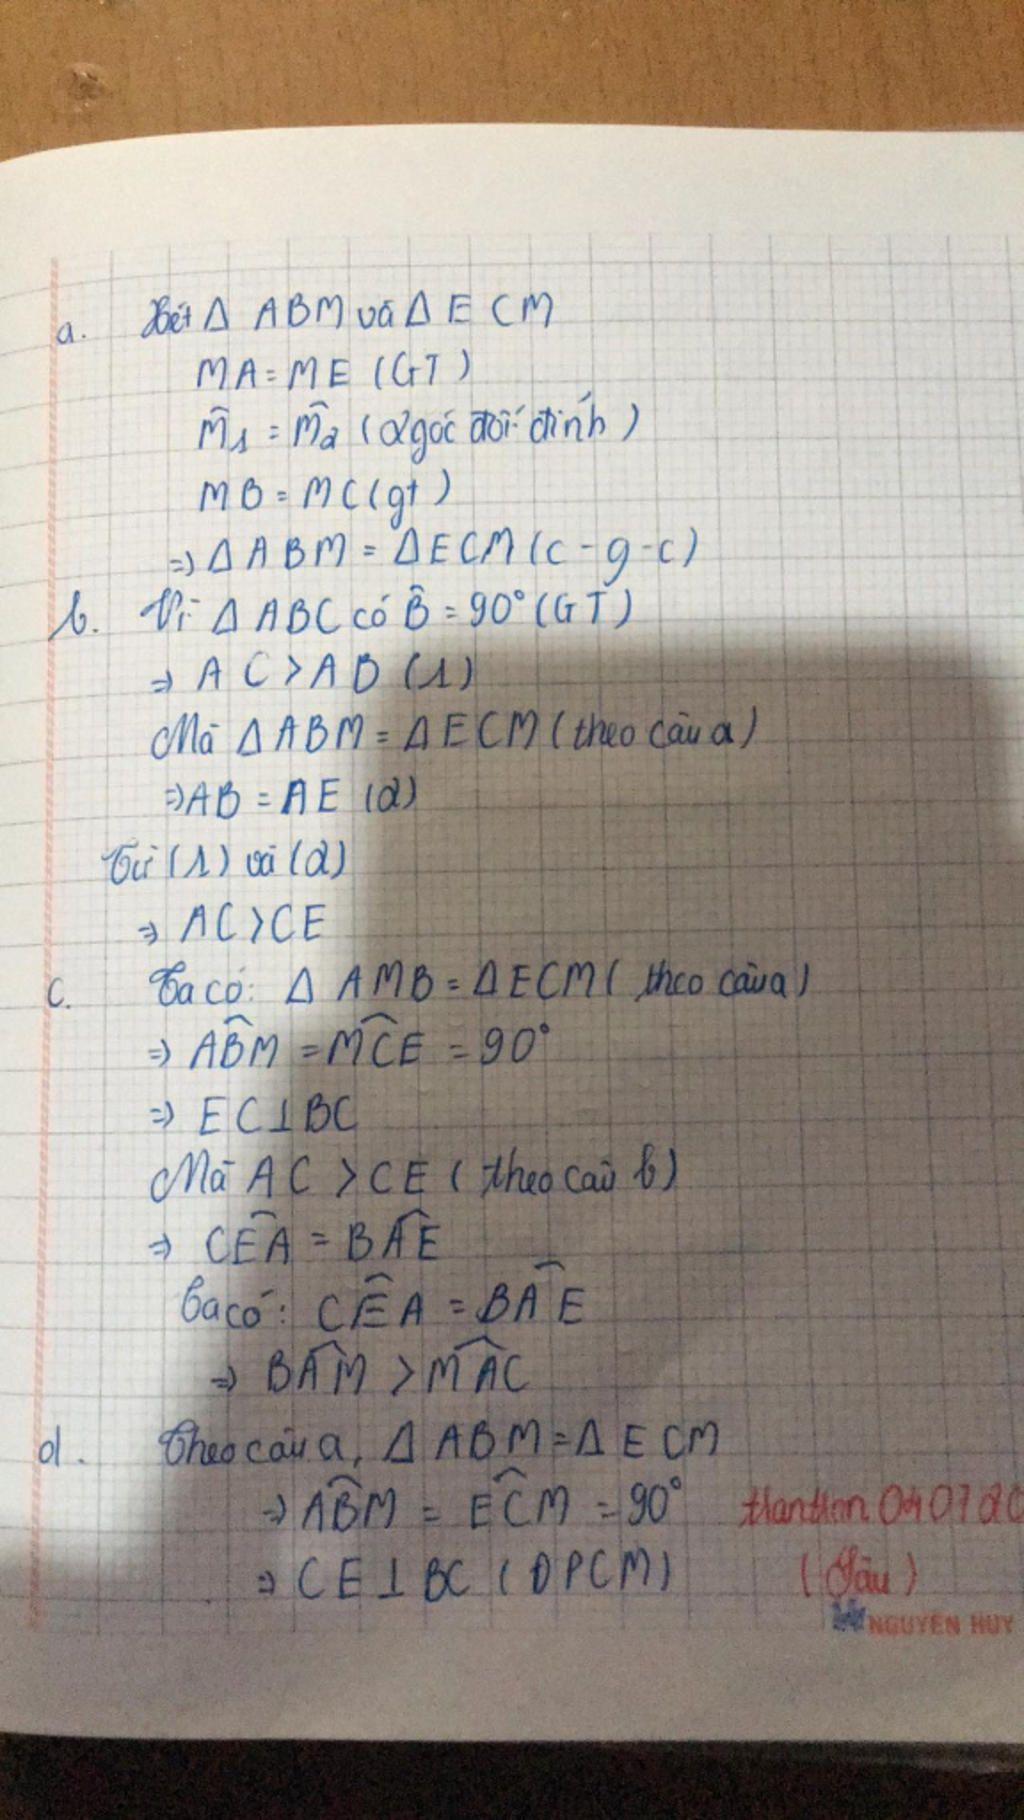 a. Xét Δ ABM và Δ ECM
MA = ME (GT)
M̂1 = M̂2 (2 góc đối đỉnh)
MB = MC (gt)
=> Δ ABM = Δ ECM (c-g-c)
b. Vì Δ ABC có B̂ = 90° (GT)
=> AC > AB (1)
Mà Δ ABM = Δ ECM (theo câu a)
=> AB = AE (2)
Từ (1) và (2)
=> AC > CE
c. Ta có: Δ AMB = Δ ECM (theo câu a)
=> AB̂M = MĈE = 90°
=> EC ⊥ BC
Mà AC > CE (theo câu b)
=> CÊA = BÂE
Ta có: CÊA = BÂE
=> BÂM > MÂC
d. Theo câu a, Δ ABM = Δ ECM
=> AB̂M = EĈM = 90°
=> CE ⊥ BC (ĐPCM)
NGUYEN HUY